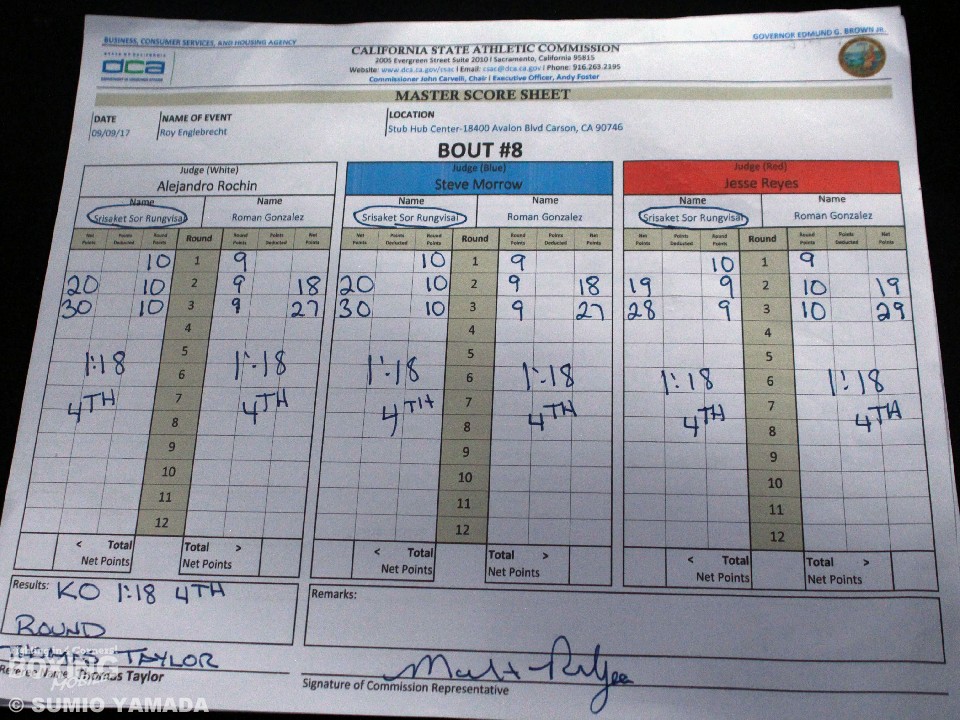 BUSINESS, CONSUMER SERVICES, AND HOUSING AGENCY
GOVERNOR EDMUND G. BROWN JR.
STATE OF CALIFORNIA
dca
DEPARTMENT OF CONSUMER AFFAIRS
CALIFORNIA STATE ATHLETIC COMMISSION
2005 Evergreen Street Suite 2010 | Sacramento, California 95815
Website: www.dca.ca.gov/csac | Email: csac@dca.ca.gov | Phone: 916.263.2195
Commissioner John Carvelli, Chair | Executive Officer, Andy Foster
MASTER SCORE SHEET
DATE NAME OF EVENT LOCATION
09/09/17 Roy Englebrecht Stub Hub Center-18400 Avalon Blvd Carson, CA 90746
BOUT #8
Judge (White) Judge (Blue) Judge (Red)
Alejandro Rochin Steve Morrow Jesse Reyes
Name Name Name Name Name Name
Srisaket Sor Rungvisai Roman Gonzalez Srisaket Sor Rungvisai Roman Gonzalez Srisaket Sor Rungvisai Roman Gonzalez
Net Points Points Deducted Round Points Round Round Points Points Deducted Net Points Net Points Points Deducted Round Points Round Round Points Points Deducted Net Points Net Points Points Deducted Round Points Round Round Points Points Deducted Net Points
10 1 9 10 1 9 10 1 9
20 10 2 9 18 20 10 2 9 18 19 9 2 10 19
30 10 3 9 27 30 10 3 9 27 28 9 3 10 29
4 4 4
5 5 5
1:18 6 1:18 1:18 6 1:18 1:18 6 1:18
4TH 7 4TH 4TH 7 4TH 4TH 7 4TH
8 8 8
9 9 9
10 10 10
11 11 11
12 12 12
< Total Total > < Total Total > < Total Total >
Net Points Net Points Net Points Net Points Net Points Net Points
Results: KO 1:18 4TH
ROUND
Remarks:
THOMAS TAYLOR
Referee Name: Thomas Taylor
Signature of Commission Representative
BOXING
MOBILE
© SUMIO YAMADA